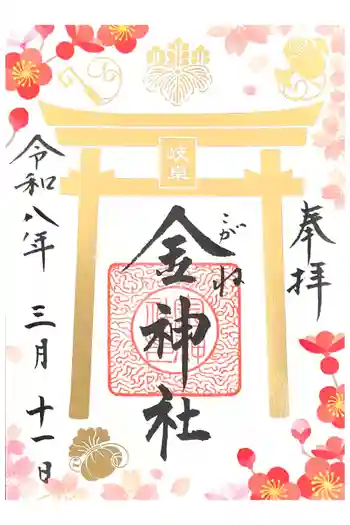 奉拝
こがね
金神社
岐阜
令和八年 三月 十一日